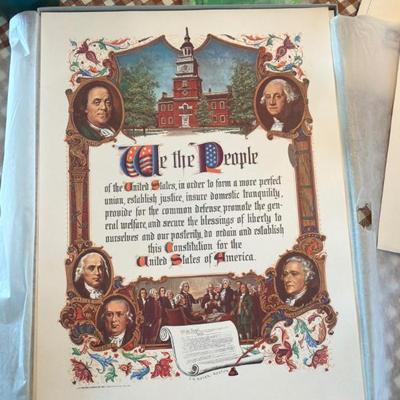 We the People
of the United States, in order to form a more perfect
union, establish justice, insure domestic tranquility,
provide for the common defense, promote the gen-
eral welfare, and secure the blessings of liberty to
ourselves and our posterity, do ordain and establish
this Constitution for the
United States of America.
We the People